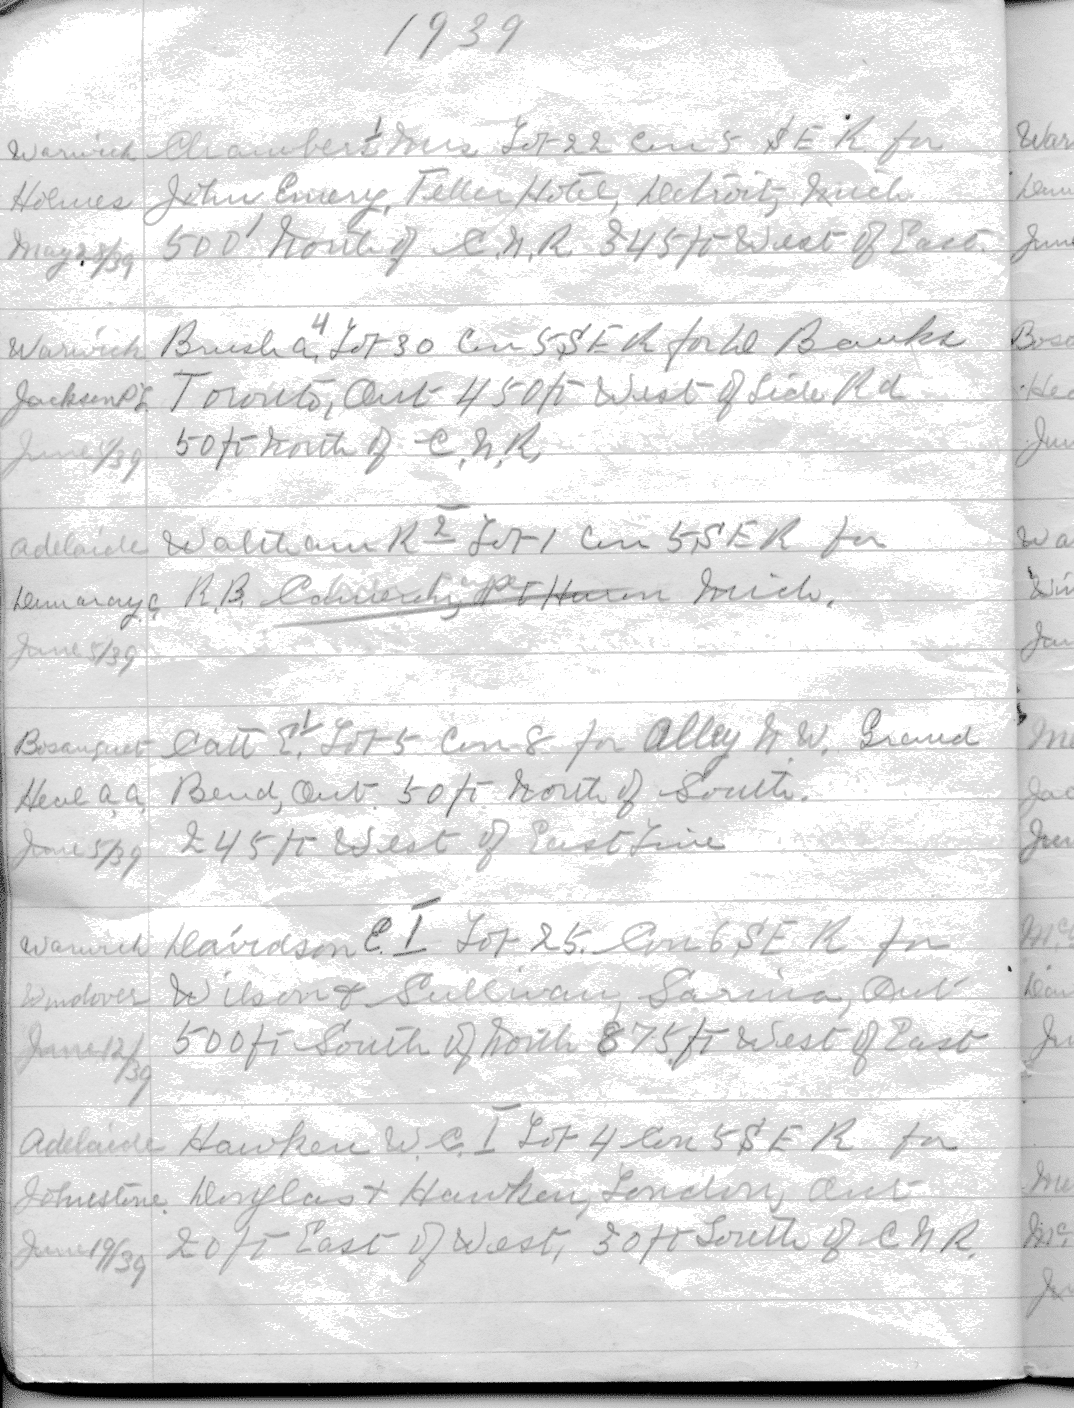 1939
Warwick Chambers 1 Mrs. Lot 22 Con 5 S E R for
Holmes John Emery, Teller Hotel, Detroit, Mich
May 28/39 500' North of C.N.R. 345 ft West of East.
Warwick Brush A. 4 Lot 30 Con 5 S E R for De Banks
Jackson P.L. Toronto, Ont 450 ft West of Side Rd
June 1/39 50 ft North of C.N.R.
Adelaide Waltham R 2 Lot 1 Con 5 S E R for
Demaray, C. R.B. Pt Huron Mich.
June 5/39
Bosanquet Catt E. 1 Lot 5 Con 8 for Alley N. W. Grand
Heal A. A. Bend, Ont. 50 ft North of South.
June 5/39 245 ft West of East Line
Warwick Davidson C. I Lot 25. Con 6 S E R for
Windover Wilson & Sullivan, Sarnia, Ont
June 12/39 500 ft South of North 875 ft West of East
Adelaide Hawken W. C. I Lot 4 Con 5 S E R for
Johnstone. Douglas & Hawken, London, Ont
June 19/39 20 ft East of West, 30 ft South of C N R.